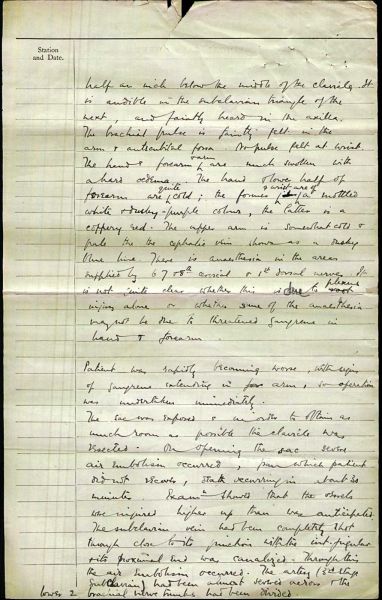 Station
and Date.
half an inch below the middle of the clavicle. It
is audible in the subclavian triangle of the
neck, and faintly heard in the axilla.
The brachial pulse is faintly felt in the
arm & antecubital fossa. No pulse felt at wrist.
The hand & forearm are much swollen with
a hard oedema. The hand & lower half of
forearm are quite cold; the former is a mottled
white & dusky-purple colour, the latter is a
coppery red. The upper arm is somewhat cold &
pale the cephalic vein shown as a dusky
blue line. There is anaesthesia in the areas
supplied by 6 7 & 8th cervical & 1st dorsal nerves. It
is not quite clear whether this is due to plexus
injury alone or whether some of the anaesthesia
may not be due to threatened gangrene in
hand & forearm
Patient was rapidly becoming worse, with signs
of gangrene extending in arm, so operation
was undertaken immediately.
The sac was exposed & in order to obtain as
much room as possible the clavicle was
resected. On opening the sac severe
air embolism occurred, from which patient
did not recover, death occurring in about 20
minutes. Examn shows that the vessels
were injured higher up than was anticipated.
The subclavian vein had been completely shot
through close to its junction with the int. jugular
& its proximal end was canalized. Through this
the air embolism occurred. The artery (3rd stage
subclavian) had been almost severed across & the
lower 2 brachial nerve trunks had been divided